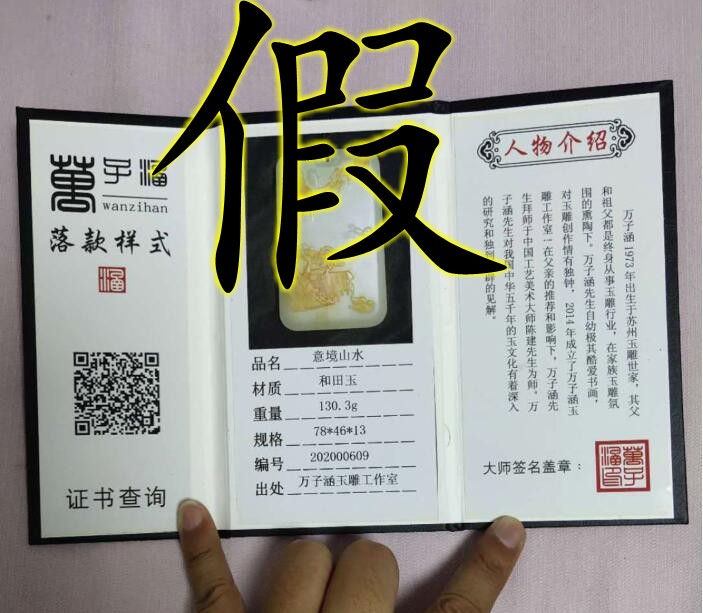 假
萬子涵
wanzihan
落款样式
涵
证书查询
品名 意境山水
材质 和田玉
重量 130.3g
规格 78*46*13
编号 202000609
出处 万子涵玉雕工作室
人物介绍
万子涵 1973 年出生于苏州玉雕世家，其父
和祖父都是终身从事玉雕行业，在家族玉雕氛
围的熏陶下。万子涵先生自幼极其酷爱书画，
对玉雕创作情有独钟，2014 年成立了万子涵玉
雕工作室！在父亲的推荐和影响下，万子涵先
生拜师于中国工艺美术大师陈建先生为师。万
子涵先生对我国中华五千年的玉文化有着深入
的研究和独到群的见解。
大师签名盖章：
萬子涵印